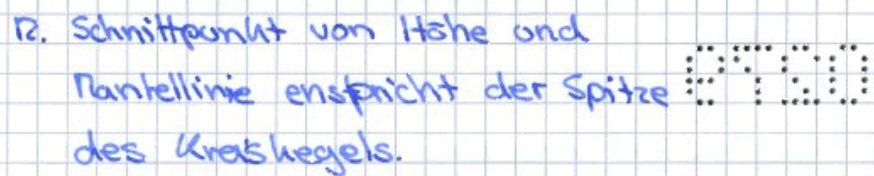 12. Schnittpunkt von Höhe und
Mantellinie enspricht der Spitze
des Kreiskegels.